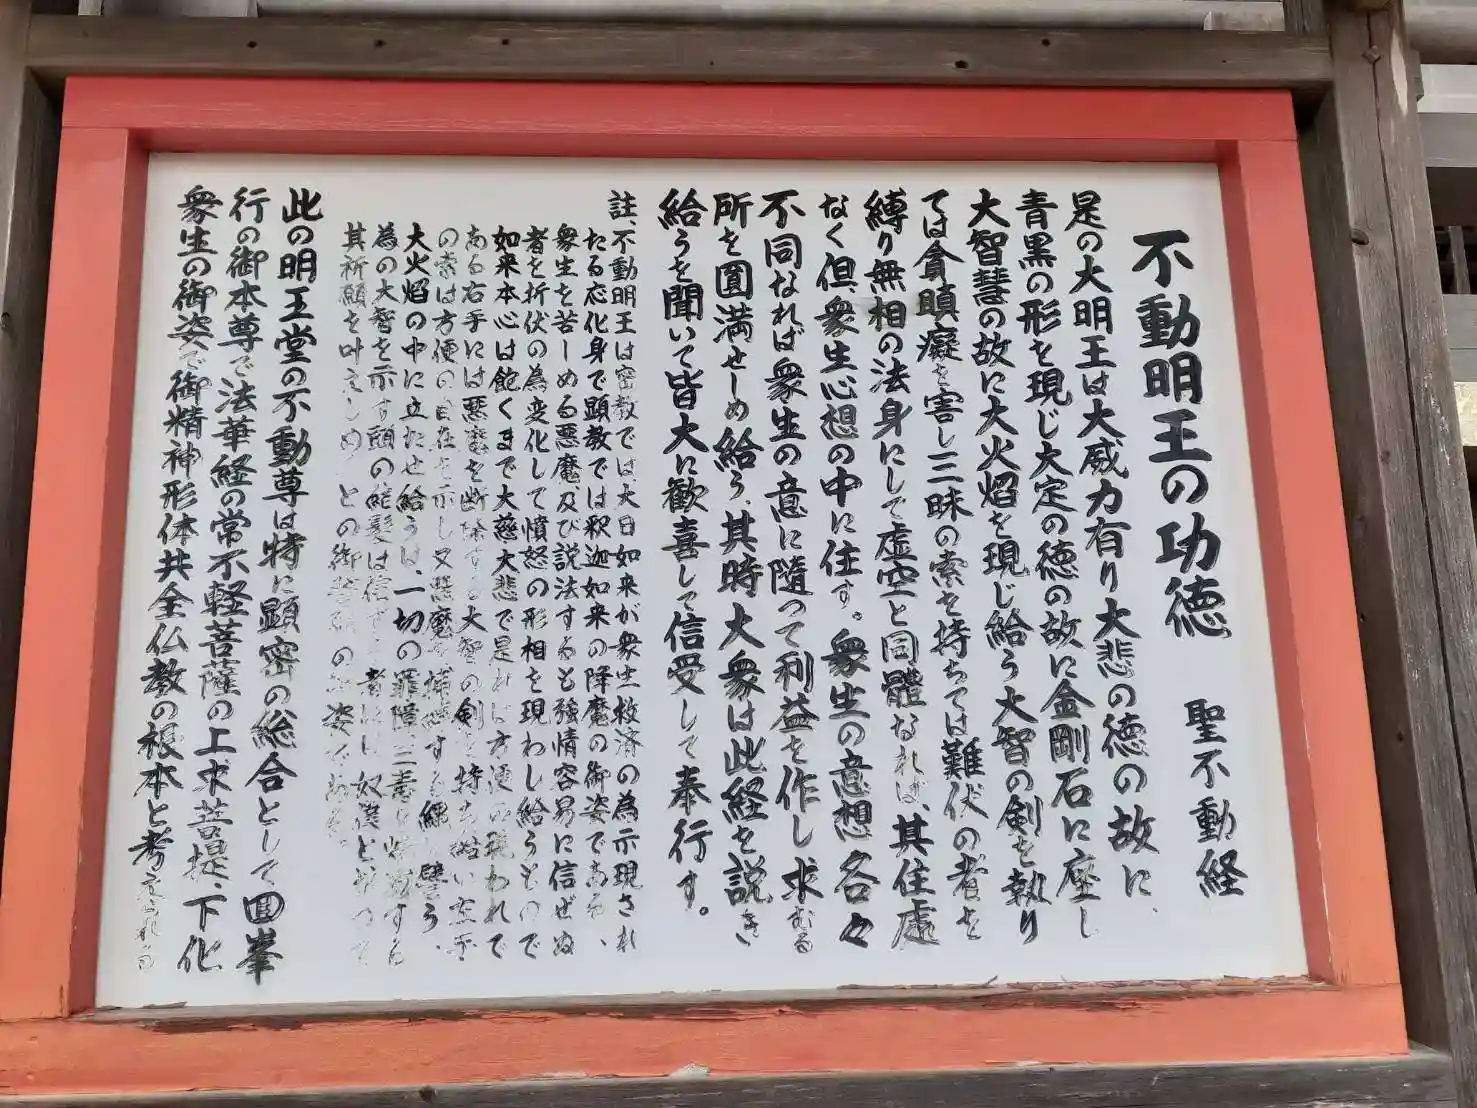 不動明王の功徳 聖不動経
是の大明王は大威力有り大悲の徳の故に、
青黒の形を現じ大定の徳の故に金剛石に座し
大智慧の故に大火焰を現じ給う大智の剣を執り
ては貪瞋癡を害し三昧の索を持ちては難伏の者を
縛り無相の法身にして虚空と同體なれば、其住處
なく但衆生心想の中に住す。衆生の意想各々
不同なれば衆生の意に隨って利益を作し求むる
所を圓満せしめ給う、其時大衆は此経を説き
給うを聞いて皆大に歓喜して信受して奉行す。
註、不動明王は密教では大日如来が衆生救済の為示現され
たる応化身で顕教では釈迦如来の降魔の御姿である、
衆生を苦しめる悪魔及び説法するも強情容易に信ぜぬ
者を折伏の為変化して憤怒の形相を現わし給うもので
如来本心は飽くまで大慈大悲で是れは方便の現われで
ある右手には悪魔を断除する大智の剣を持ち
の索は方便の自在を示し又悪魔を捕縛する縄に譬う、
大火焰の中に立たせ給うは、一切の罪障三毒を
為の大智を示す頭の は信ずる者には奴僕と
其祈願を叶えしめんとの御 の姿である。
此の明王堂の不動尊は特に顕密の総合として圓峯
行の御本尊で法華経の常不軽菩薩の上求菩提、下化
衆生の御姿で御精神形体共全仏教の根本と考えられる